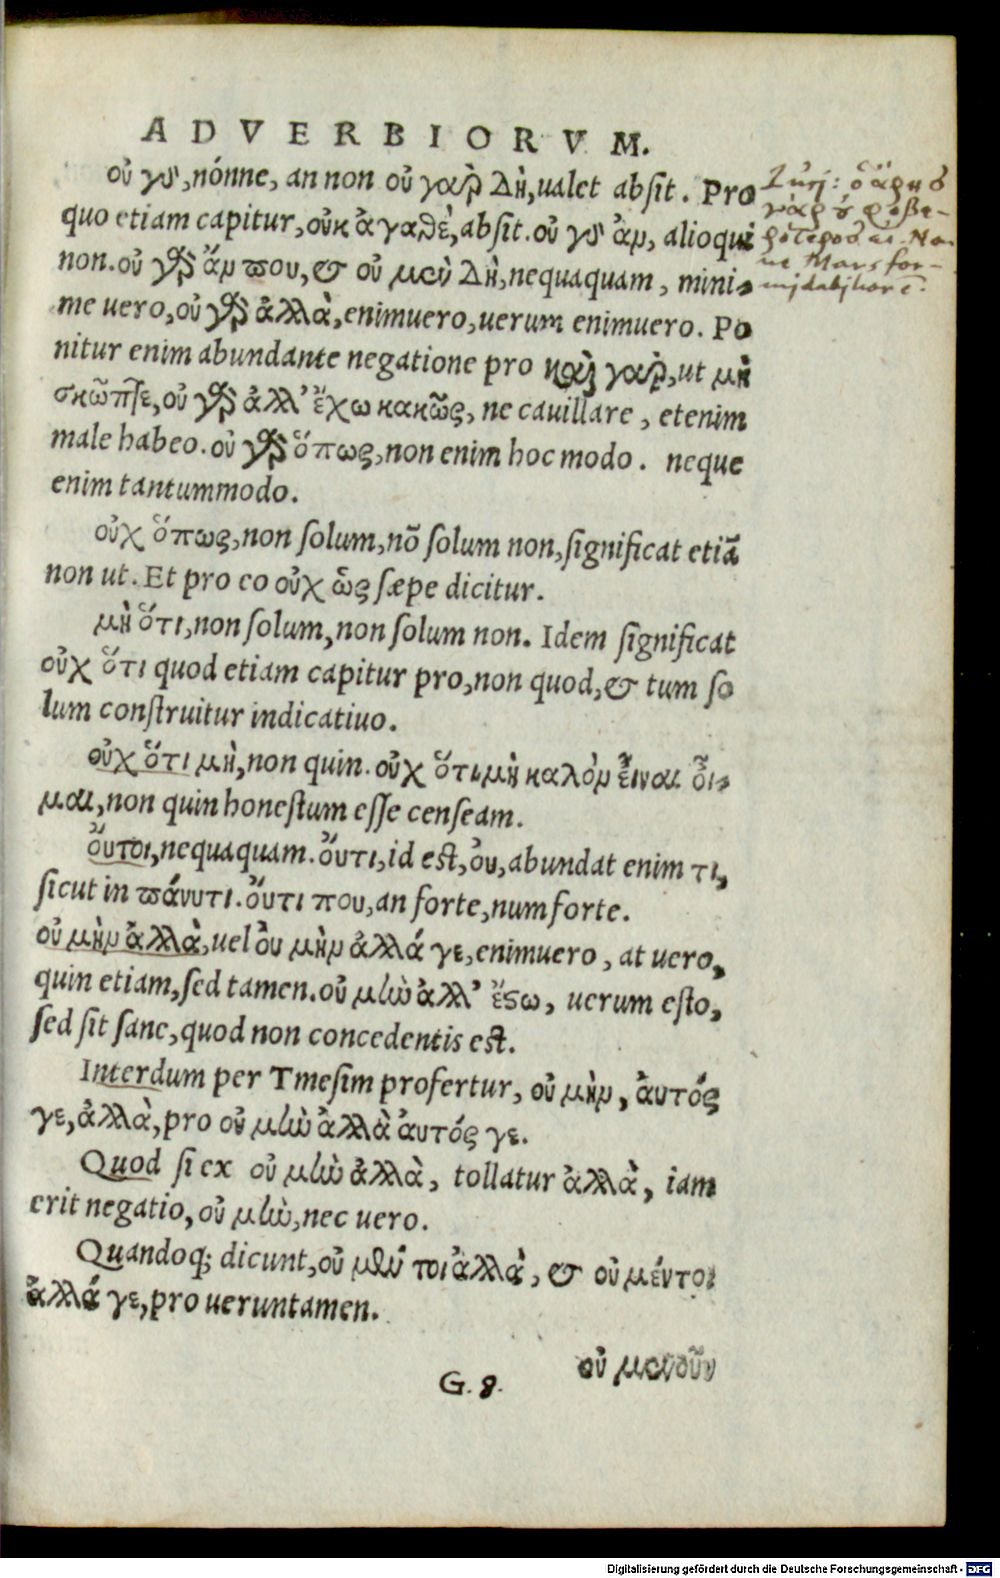 ADVERBIORVM.
οὐ γὰρ, nónne, an non οὐ γαὸρ Δὴ, ualet absit. Pro
quo etiam capitur, οὐκ ἀγαθὲ, absit. οὐ γὰρ ἂρ, alioqui
non. οὐ γὰρ ἄρ που, & οὐ μεὺ Δὴ, nequaquam, mini-
me uero, οὐ γὰρ ἀλλὰ, enimuero, uerum enimuero. Po
nitur enim abundante negatione pro καὶ γαὸρ, ut μὴ
σκῶπτε, οὐ γὰρ ἀλλ’ ἔχω κακῶς, ne cauillare, etenim
male habeo. οὐ γὰρ ὅπως, non enim hoc modo. neque
enim tantummodo.
οὐχ ὅπως, non solum, nō solum non, significat etiā
non ut. Et pro eo οὐχ ὡς sæpe dicitur.
μὴ ὅτι, non solum, non solum non. Idem significat
οὐχ ὅτι quod etiam capitur pro, non quod, & tum so
lum construitur indicatiuo.
οὐχ ὅτι μὴ, non quin. οὐχ ὅτι μὴ καλὸν εἶναι οἶ-
μαι, non quin honestum esse censeam.
οὔτοι, nequaquam. οὔτι, id est, οὐ, abundat enim τι,
sicut in πάνυτι. οὔτι που, an forte, num forte.
οὐ μὴν ἀλλὰ, uel οὐ μὴν ἀλλά γε, enimuero, at uero,
quin etiam, sed tamen. οὐ μὴν ἀλλ’ ἔστω, uerum esto,
sed sit sane, quod non concedentis est.
Interdum per Tmesim profertur, οὐ μὴν, αὐτός
γε, ἀλλὰ, pro οὐ μὴν ἀλλὰ αὐτός γε.
Quod si ex οὐ μὴν ἀλλὰ, tollatur ἀλλὰ, iam
erit negatio, οὐ μὴν, nec uero.
Quandoq; dicunt, οὐ μὴν τοι ἀλλὰ, & οὐ μέντοι
ἀλλά γε, pro ueruntamen.
G. 8. οὐ μενοῦν
Digitalisierung gefördert durch die Deutsche Forschungsgemeinschaft - DFG